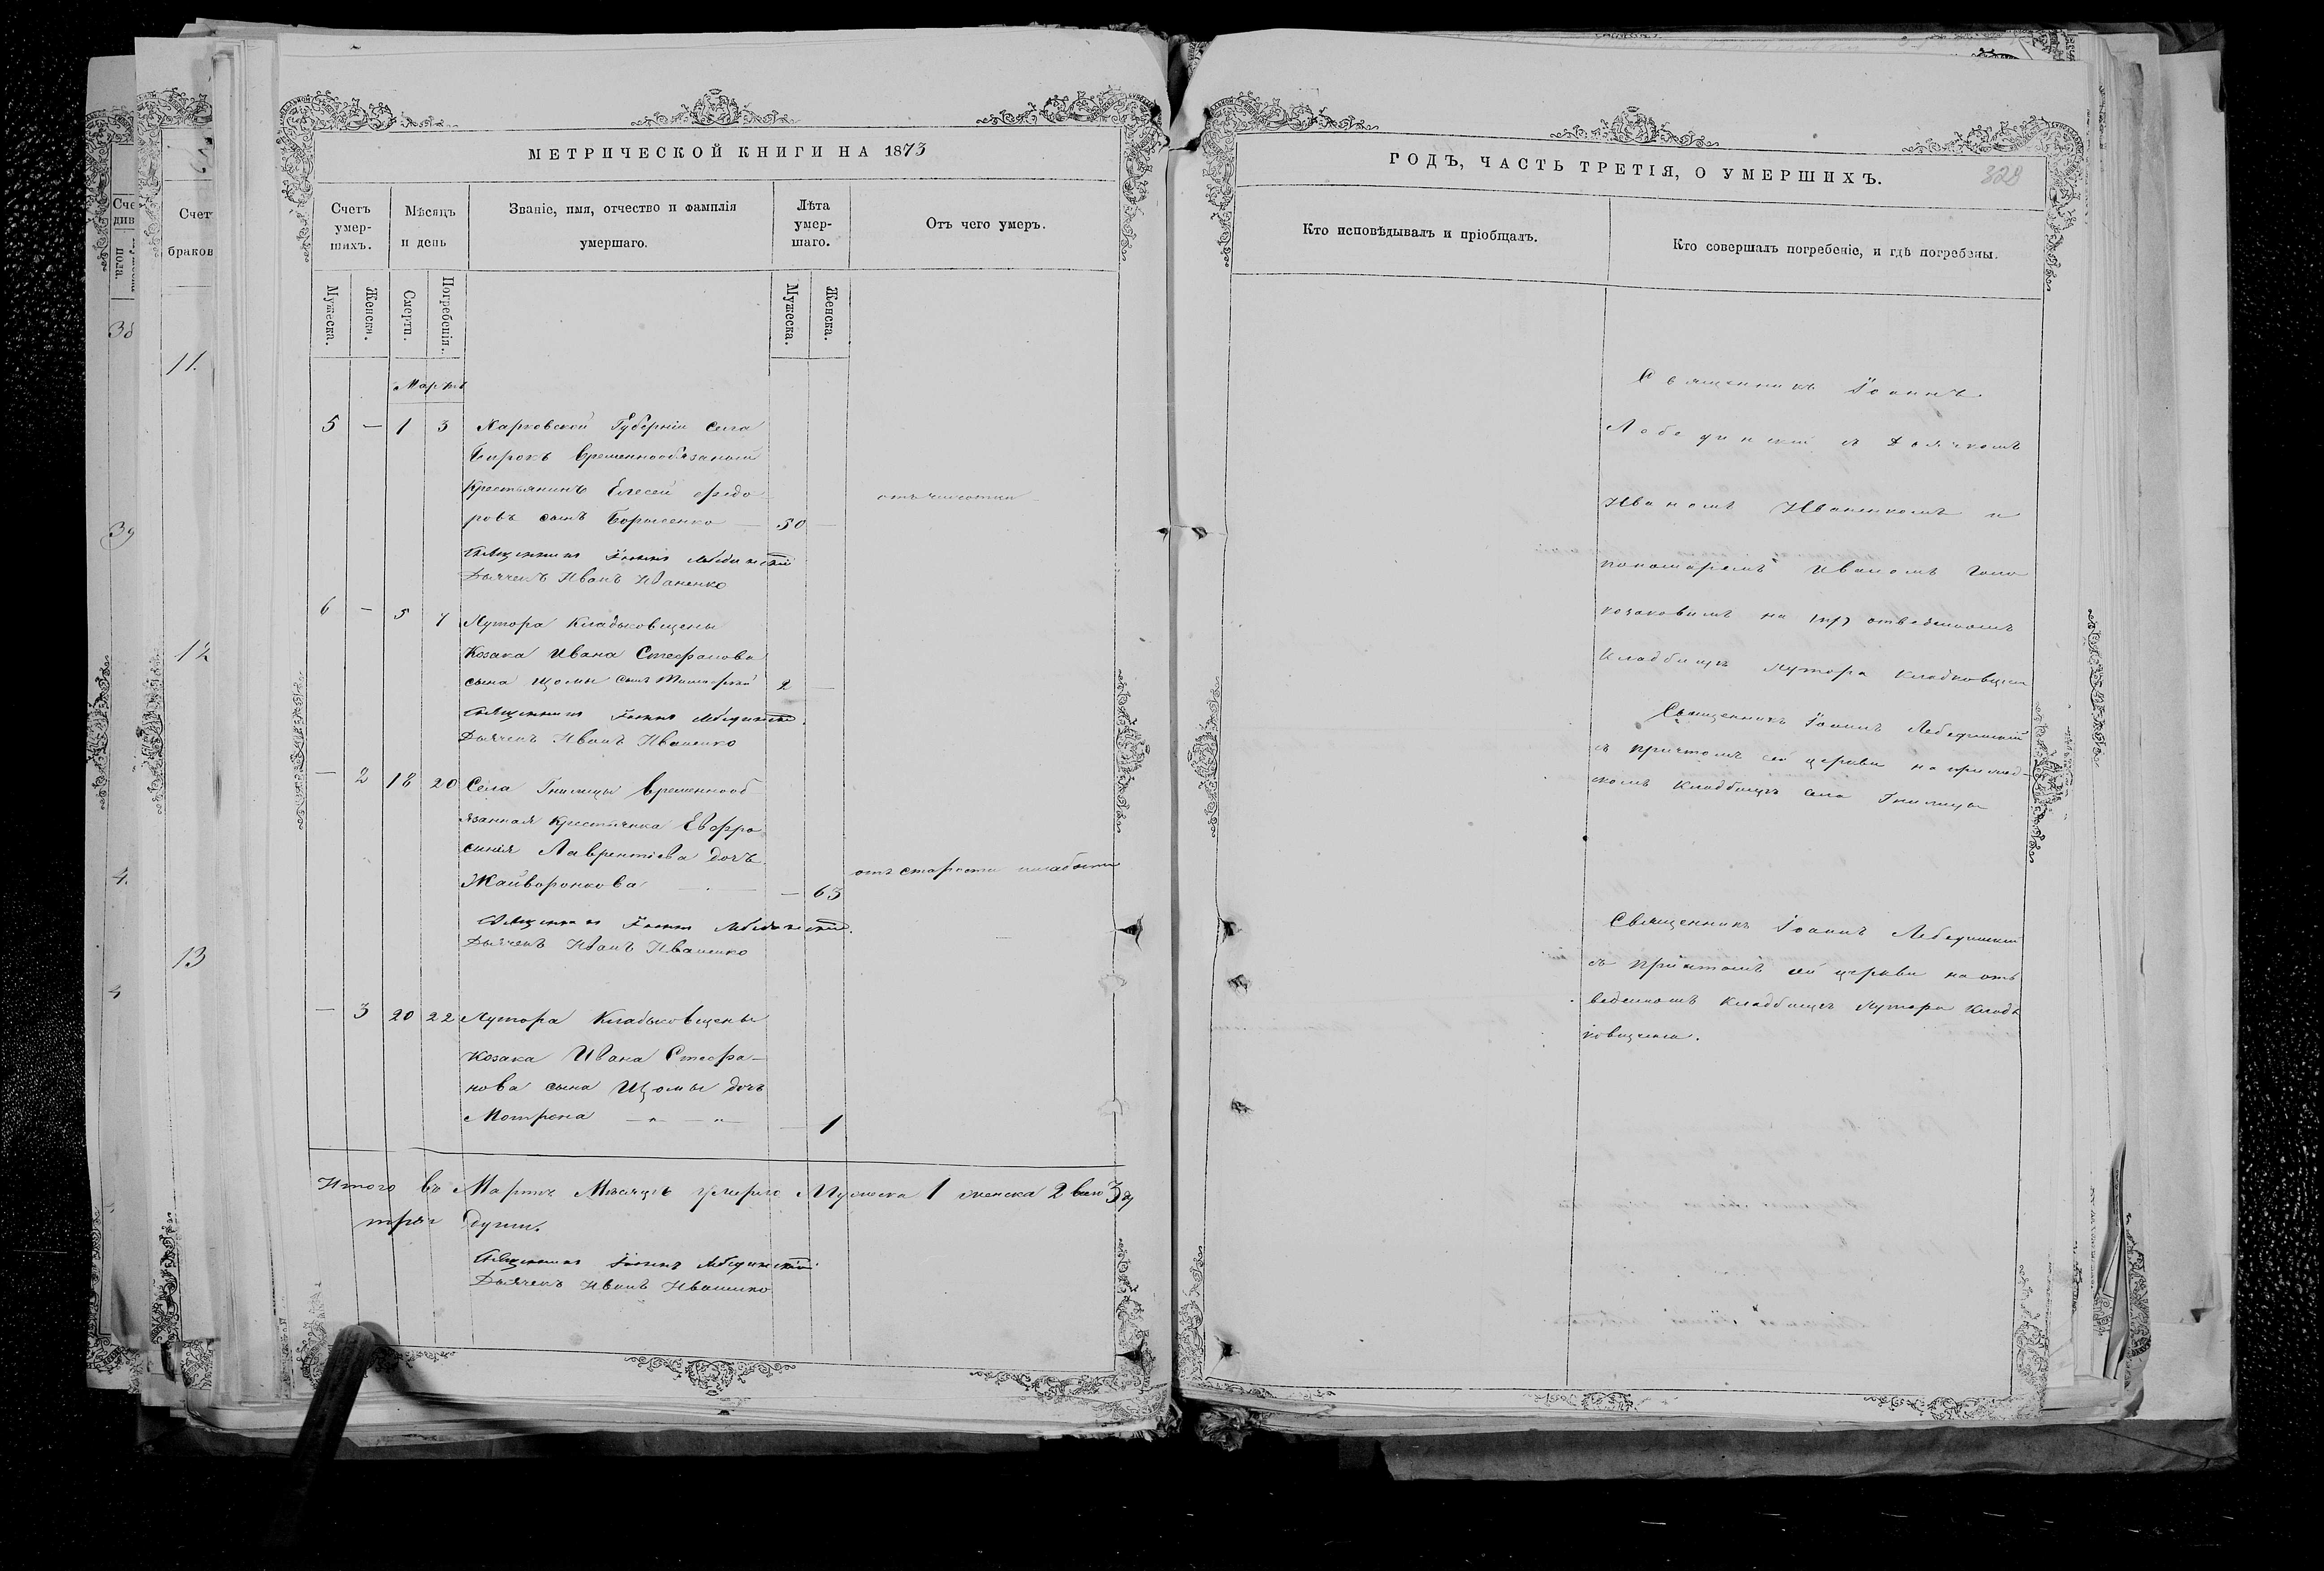 МЕТРИЧЕСКОЙ КНИГИ НА 1873
Счетъ умер-шихъ.
Мѣсяцъ и день
Званіе, имя, отчество и фамилія умершаго.
Лѣта умер-шаго.
Отъ чего умеръ.
Мужеска.
Женска.
Смерти.
Погребенія.
Мужеска.
Женска.
Мартъ
5 — 1 3 Харковской Губерніи Села
временнообязаный
Крестьянинъ Елесей Федо
ровъ сынъ Борисенко — 50 —
отъ чахотки
Священникъ Іоаннъ Лебединскій
Дьячекъ Иванъ Иваненко
6 — 5 7 Хутора Кладьковщены
Козака Ивана Стефанова
сына Щомы сынъ Тимофей 2 —
Священникъ Іоаннъ Лебединскій
Дьячекъ Иванъ Иваненко
— 2 18 20 Села Гнилицы временнооб
язанная Крестьянка Евфро
синія Лаврентіева дочь
Жайворонкова — — 63
отъ старости
Священникъ Іоаннъ Лебединскій
Дьячекъ Иванъ Иваненко
— 3 20 22 Хутора Кладьковщены
Козака Ивана Стефа-
нова сына Щомы дочь
Мотрона — 1
Итого въ Мартѣ Мѣсяцѣ умерло Мужеска 1 женска 2 3
три души.
Священникъ Іоаннъ Лебединскій
Дьячекъ Иванъ Иваненко
ГОДЪ, ЧАСТЬ ТРЕТІЯ, О УМЕРШИХЪ.
328
Кто исповѣдывалъ и пріобщалъ.
Кто совершалъ погребеніе, и гдѣ погребены.
Священникъ Іоаннъ
Лебединскій съ Дьячкомъ
Иваномъ Иваненкомъ и
пономаремъ Иваномъ Голо
козаковимъ на отведенномъ
Кладбищѣ Хутора
Священникъ Іоаннъ Лебединскій
съ причтомъ сей церкви на приход-
скомъ Кладбищѣ села Гнилицы
Священникъ Іоаннъ Лебединскій
съ причтомъ сей церкви на отъ
веденномъ Кладбищѣ Хутора Кладь
ковщены.
Счет
браков
11.
12
13
38
39
4.